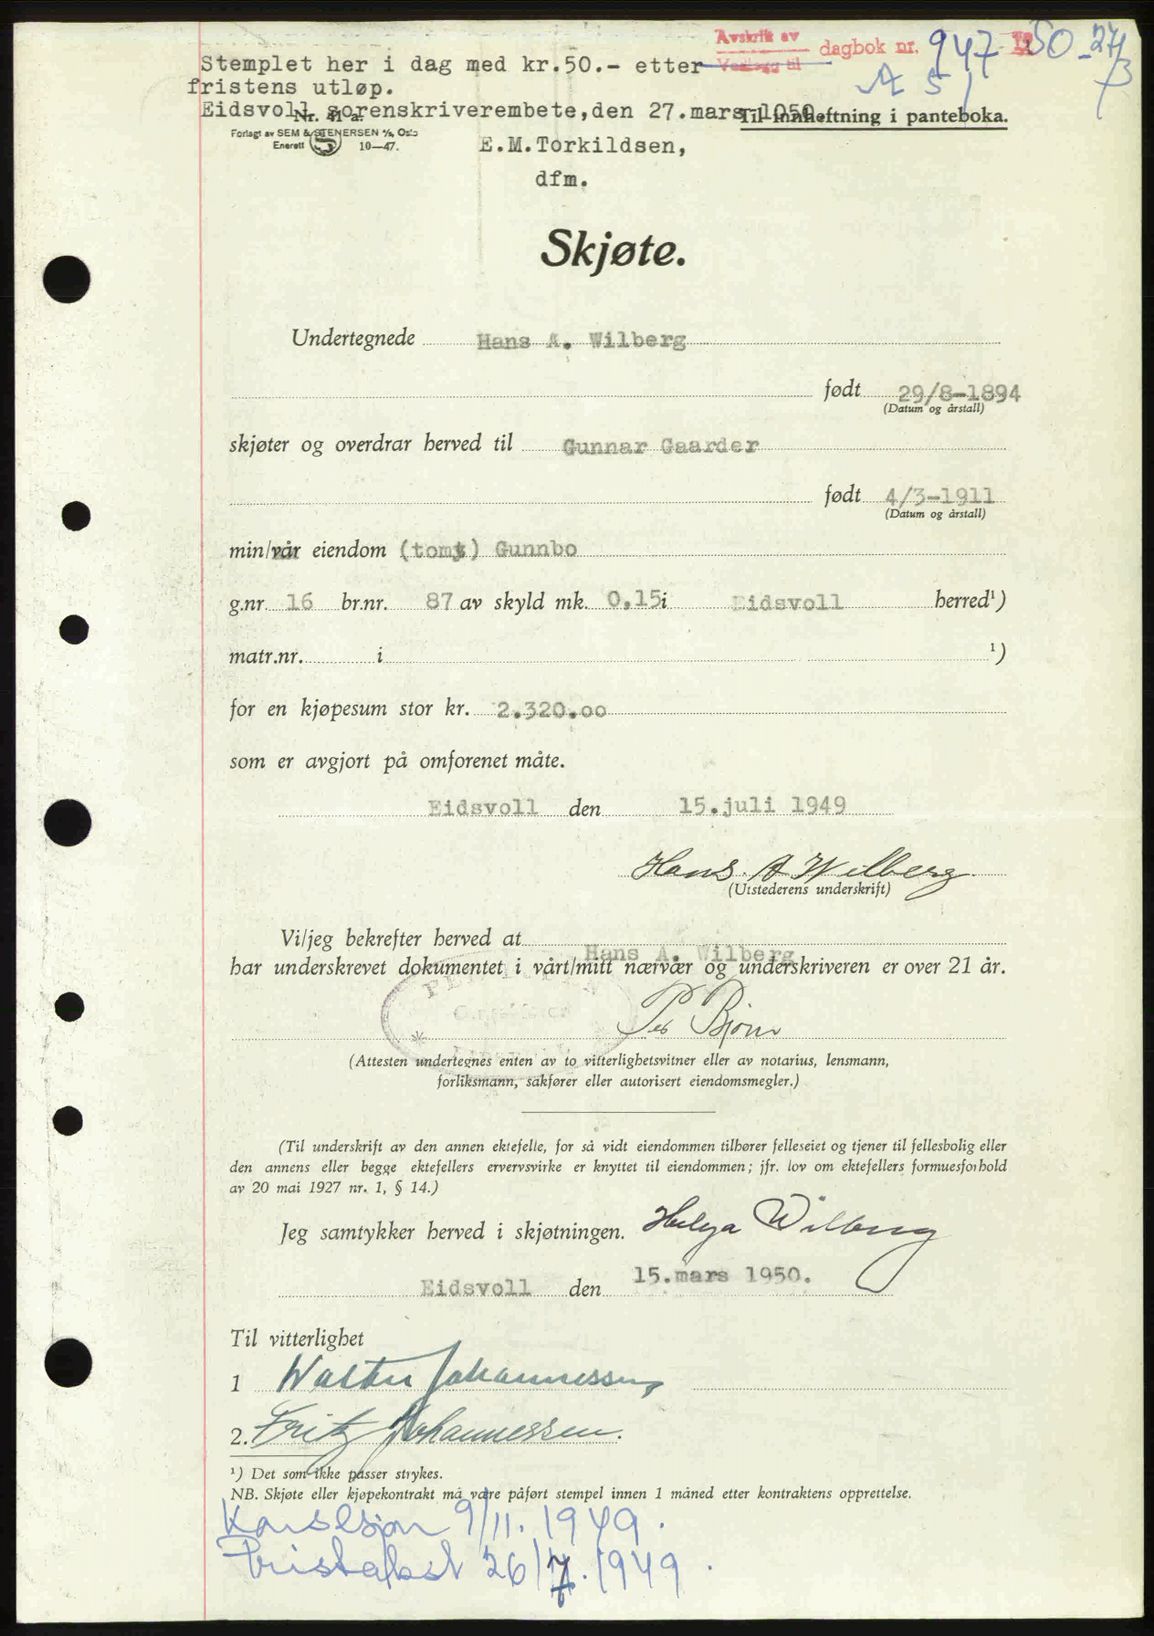 Avskrift av
Vedlegg til
dagbok nr. 947 1950 27/3
A 51
Stemplet her i dag med kr.50.- etter
fristens utløp.
Eidsvoll sorenskriverembete,den 27.mars 1950.
Til innheftning i panteboka.
Nr. 41 a.
Forlagt av SEM & STENERSEN A/S, Oslo
Enerett S 10—47.
E.M.Torkildsen,
dfm.
Skjøte.
Undertegnede Hans A. Wilberg
født 29/8-1894
(Datum og årstall)
skjøter og overdrar herved til Gunnar Gaarder
født 4/3-1911
(Datum og årstall)
min/vår eiendom (tomt) Gunnbo
g.nr. 16 br.nr. 87 av skyld mk. 0,15 i Eidsvoll herred¹)
matr.nr. i ¹)
for en kjøpesum stor kr. 2.320.00
som er avgjort på omforenet måte.
Eidsvoll den 15.juli 1949
Hans A Wilberg
(Utstederens underskrift)
Vi/jeg bekrefter herved at Hans A. Wilberg
har underskrevet dokumentet i vårt/mitt nærvær og underskriveren er over 21 år.
Per Bjønn
(Attesten undertegnes enten av to vitterlighetsvitner eller av notarius, lensmann,
forliksmann, sakfører eller autorisert eiendomsmegler.)
(Til underskrift av den annen ektefelle, for så vidt eiendommen tilhører felleseiet og tjener til fellesbolig eller
den annens eller begge ektefellers ervervsvirke er knyttet til eiendommen; jfr. lov om ektefellers formuesforhold
av 20 mai 1927 nr. 1, § 14.)
Jeg samtykker herved i skjøtningen. Helga Wilberg
Eidsvoll den 15.mars 1950.
Til vitterlighet
1 Walter Johannessen
2. Fritz Johannessen.
¹) Det som ikke passer strykes.
NB. Skjøte eller kjøpekontrakt må være påført stempel innen 1 måned etter kontraktens opprettelse.
Konsesjon 9/11. 1949.
Pristakst 26/7. 1949.